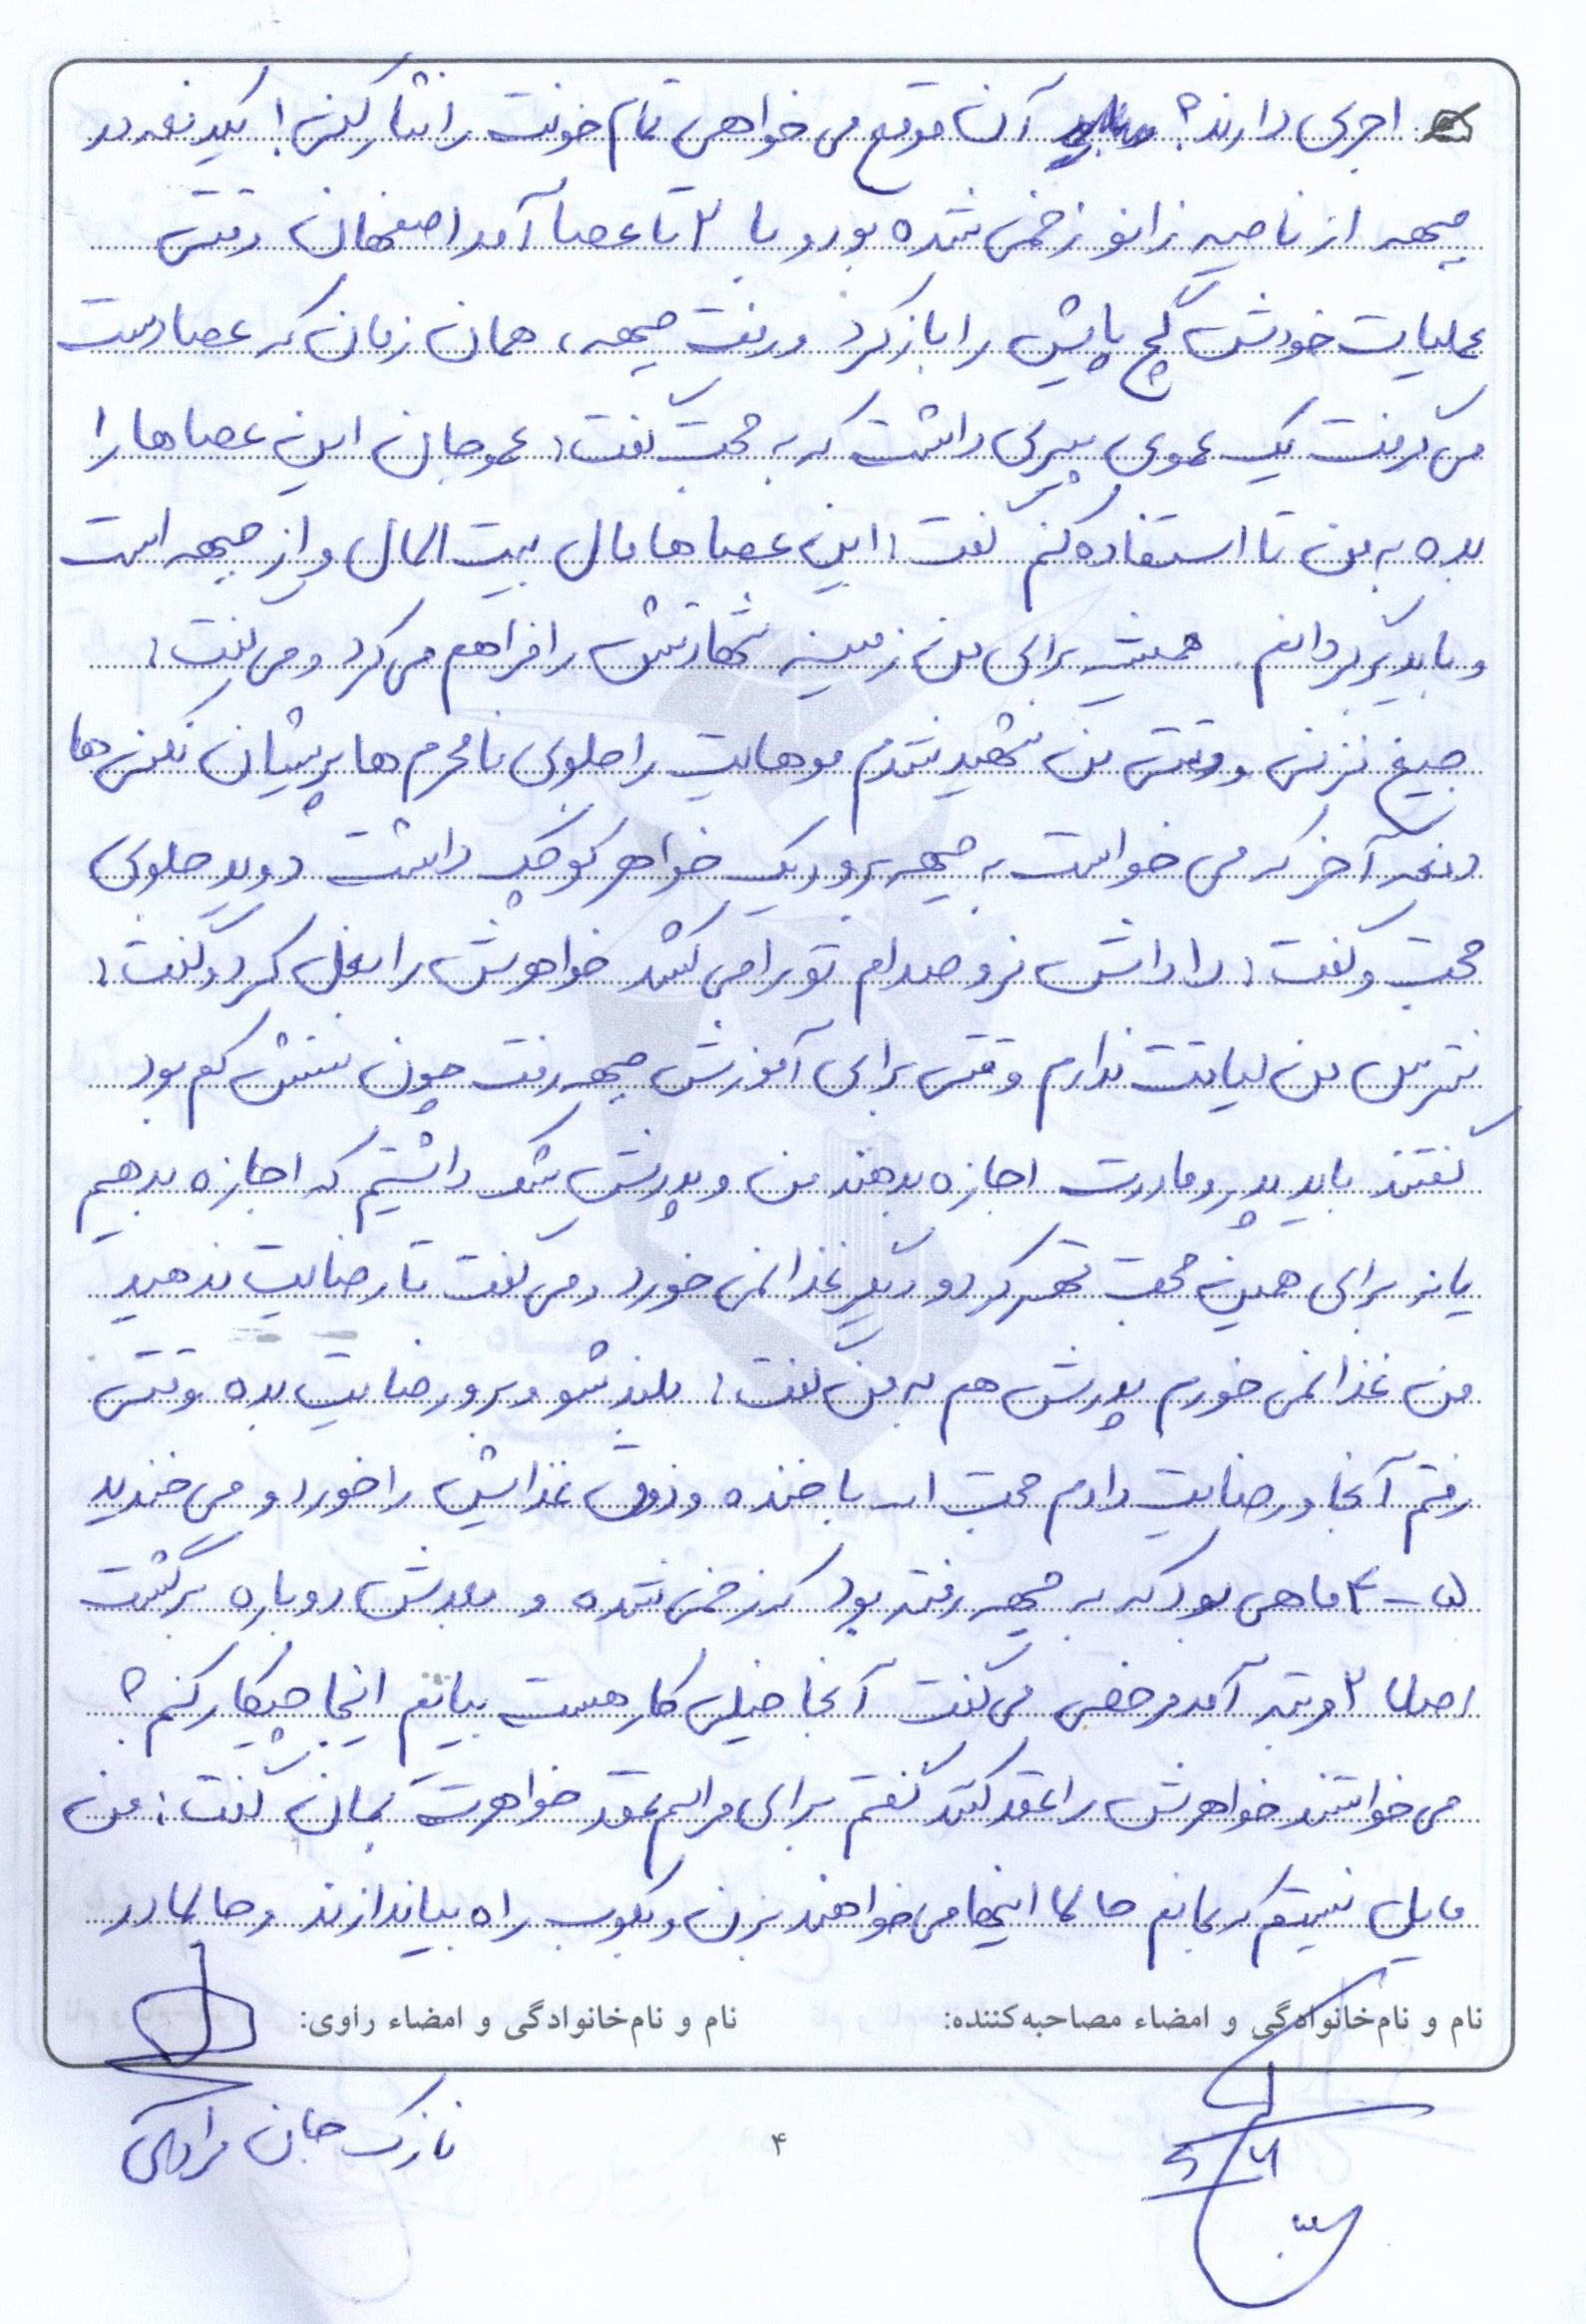 اجری دارند؟ آن موقع می خواهی تمام خونت را نثار کنی! یکدفعه در
جبهه از ناحیه زانو زخمی شده بود و با ۲ تا عصا آمد اصفهان وقتی
عملیات خودش گچ پایش را باز کرد و رفت جبهه، همان زمان که عصا دست
می گرفت یک عموی پیری داشت که به محب گفت: عمو جان این عصاها را
بده به من تا استفاده کنم گفت: این عصاها مال بیت المال و از جبهه است
و باید برگردانم. همیشه برای من زمینه شهادتش را فراهم می کرد و می گفت:
جیغ نزنی و وقتی من شهید شدم موهایت را جلوی نامحرم ها پریشان نکنی ها
دفعه آخر که می خواست به جبهه برود یک خواهر کوچک داشت دوید جلوی
محب و گفت: داداش نرو صدام تو را می کشد خواهرش را بغل کرد و گفت:
نترس من لیاقت ندارم وقتی برای آموزش جبهه رفت چون سنش کم بود
گفتند باید پدر و مادرت اجازه بدهند من و پدرش شک داشتیم که اجازه بدهیم
یا نه برای همین محب قهر کرد و دیگر غذا نمی خورد و می گفت تا رضایت ندهید
من غذا نمی خورم پدرش هم به من گفت: بلند شو و برو رضایت بده وقتی
رفتم آنجا و رضایت دادم محب با خنده و ذوق غذایش را خورد و می خندید
۴-۵ ماهی بود که به جبهه رفته بود که زخمی شده و بعدش دوباره برگشت
اصلا ۲ مرتبه آمد مرخصی می گفت آنجا خیلی کار هست بیایم اینجا چیکار کنم؟
می خواستند خواهرش را عقد کنند گفتم برای مراسم عقد خواهرت بمان گفت: من
مایل نیستم که بمانم حالا اینها می خواهند بزن و بکوب راه بیاندازند و حالا در
نام و نام‌خانوادگی و امضاء مصاحبه‌کننده: نام و نام‌خانوادگی و امضاء راوی:
نازک جان مرادی
۴